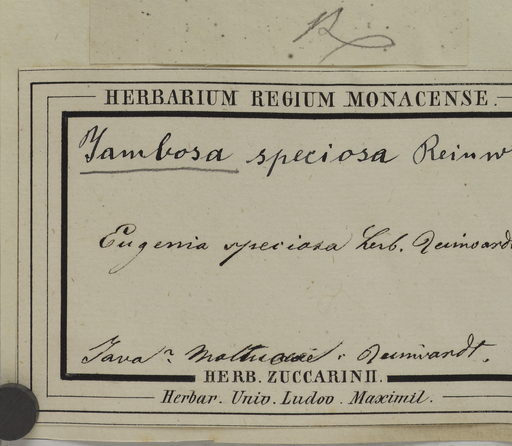 HERBARIUM REGIUM MONACENSE.
Jambosa speciosa Reinw
Eugenia speciosa herb. Reinwardt
Java? Moluccae? Reinwardt.
HERB. ZUCCARINII.
Herbar. Univ. Ludov. Maximil.